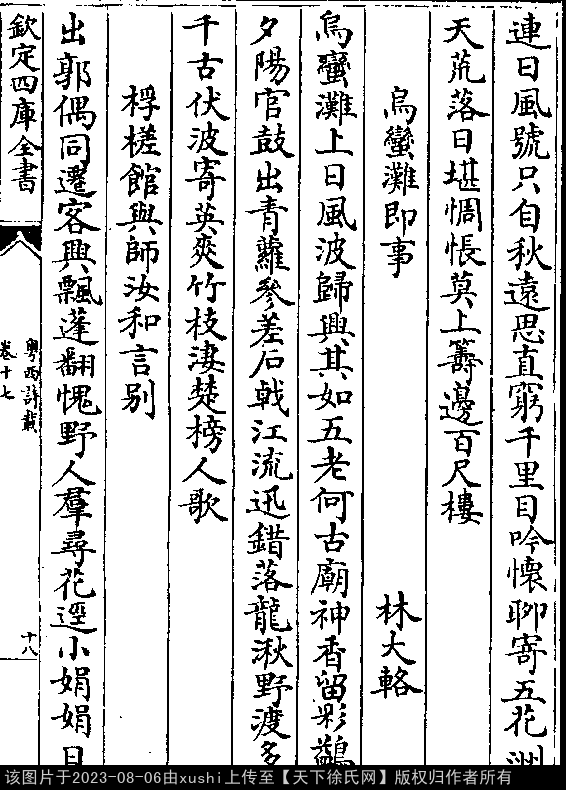 連日風號只自秋遠思直窮千里目吟懷聊寄五花洲
天荒落日堪惆悵莫上籌邊百尺樓
烏蠻灘即事 林大輅
烏蠻灘上日風波歸興其如五老何古廟神香留彩鷁
夕陽官鼓出青蘿參差石戟江流迅錯落龍湫野渡多
千古伏波寄英爽竹枝淒楚榜人歌
桴槎館與師汝和言别
出郭偶同遷客興飄蓬翻愧野人羣尋花逕小娟娟日
欽定四庫全書
粤西詩載
卷十七
十八
该图片于2023-08-06由xushi上传至【天下徐氏网】版权归作者所有